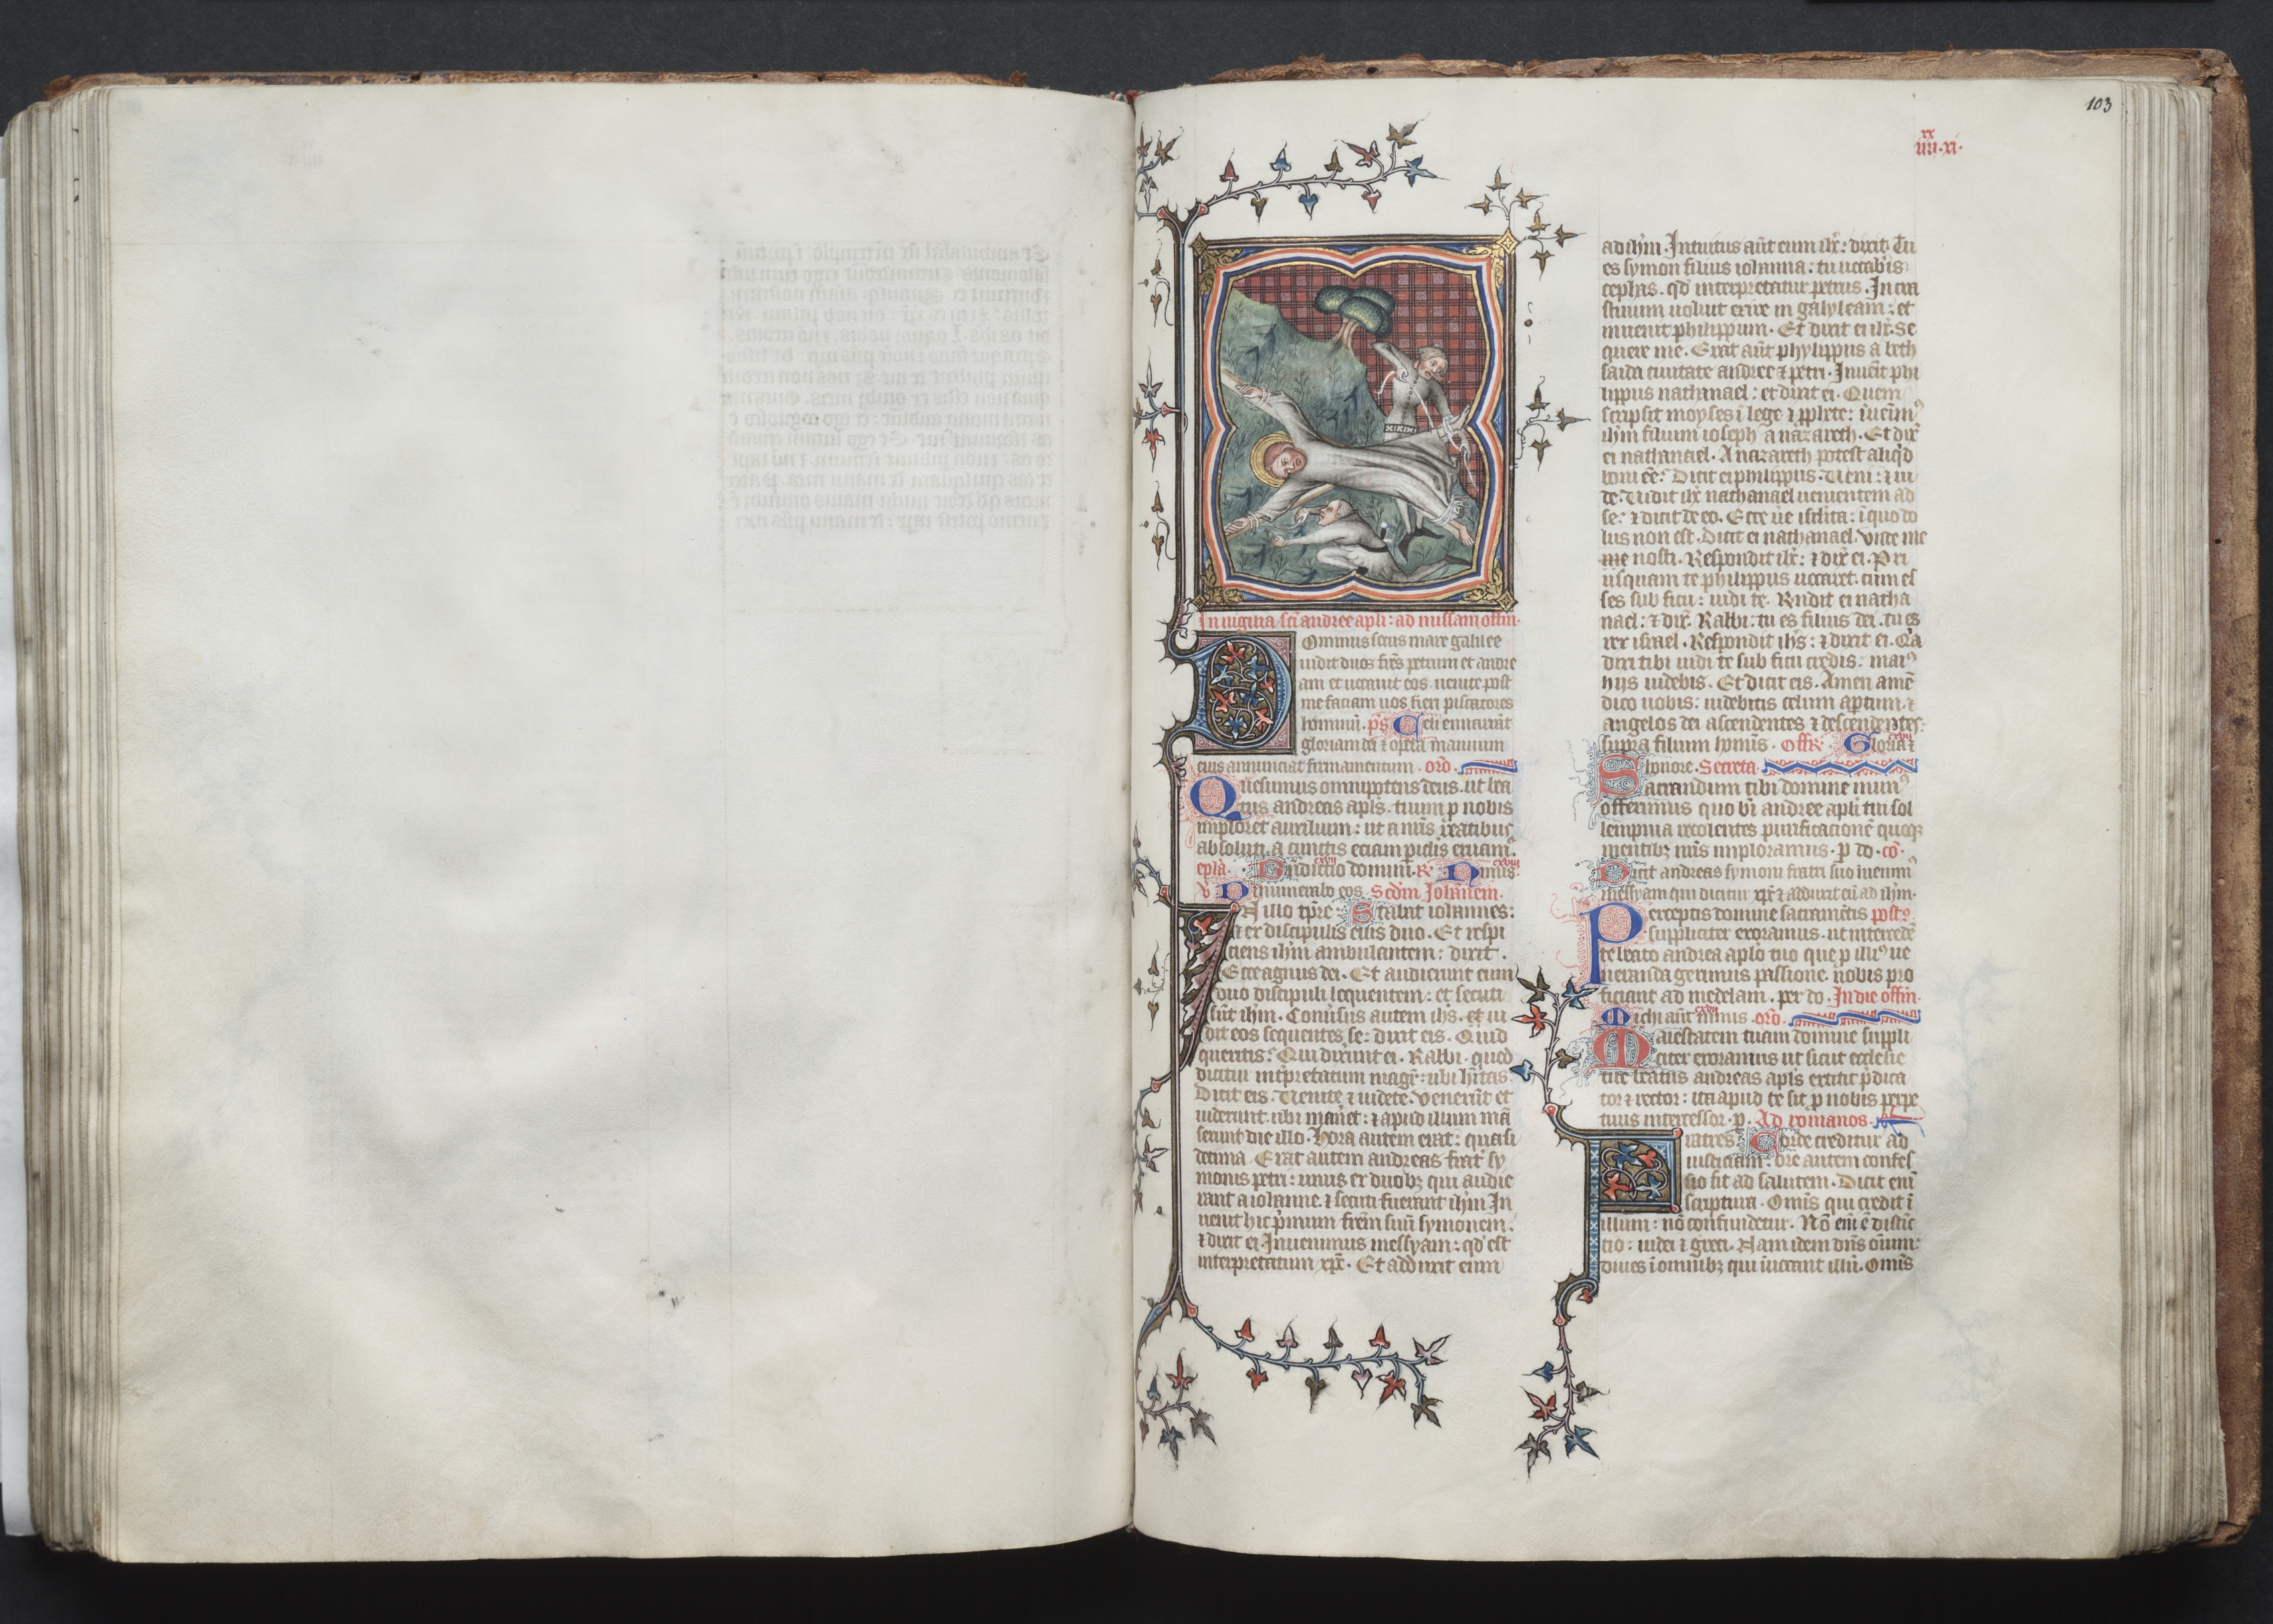 103
xx
iiii·xi·
In uigilia sci andree apli: ad missam offm·
Dominus secus mare galilee
uidit duos fres petrum et andre
am et uocauit eos uenite post
me faciam uos fieri piscatores
hominū. ps Celi enarrant
gloriam dei ⁊ opera manuum
eius annunciat firmamentum. orō.
Quesumus omnipotens deus. ut bea
tus andreas apls. tuum p nobis
imploret auxilium: ut a nris reatibus
absoluti. a cunctis eciam piclis eruam᷒.
epla. Bndictio domini. R. Nimis.
V Dinumerabo eos. Scdm Iohannem.
In illo tpre: Stabat iohannes:
⁊ ex discipulis eius duo. Et respi
ciens ihm ambulantem: dixit.
Ecce agnus dei. Et audierunt eum
duo discipuli loquentem: et secuti
sūt ihm. Conūsus autem ihs. et ui
dit eos sequentes se: dixit eis. Quid
queritis? Qui dixerunt ei. Rabbi. quod
dicitur intpretatum magr: ubi hitas.
Dicit eis. Uenite ⁊ uidete. Venerūt et
uiderunt ubi maneret: ⁊ apud illum mā
serunt die illo. Hora autem erat: quasi
decima. Erat autem andreas frat sy
monis petri: unus ex duobȝ qui audie
rant a iohanne. ⁊ secuti fuerant ihm. In
uenit hic pmum frem suū symonem.
⁊ dixit ei. Inuenimus messyam: qd est
interpretatum xpc. Et adduxit eum
ad ihm. Intuitus aūt eum ihc: dixit. Tu
es symon filius iohanna: tu uocabis
cephas. qd interpretatur petrus. In cra
stinum uoluit exire in galyleam: et
inuenit philippum. Et dixit ei ihc. Se
quere me. Erat aūt phylippus a beth
saida ciuitate andree ⁊ petri. Inuēit phi
lippus nathanael: et dixit ei. Quem
scripsit moyses ī lege ⁊ pphete: īuenim᷒
ihm filium ioseph a nazareth. Et dix
ei nathanael. A nazareth potest aliqd
boni eē? Dicit ei philippus. Ueni: ⁊ ui
de. Uidit ihc nathanael uenientem ad
se: ⁊ dicit de eo. Ecce ūe isrlita: ī quo do
lus non est. Dicit ei nathanael. Unde me
me nosti. Respondit ihc: ⁊ dix ei. Pri
usquam te philippus uocaret. cum es
ses sub ficu: uidi te. Rndit ei natha
nael: ⁊ dix. Rabbi: tu es filius dei. tu es
rex israel. Respondit ihs: ⁊ dixit ei. Qa
dixi tibi uidi te sub ficu credis: mai᷒
hijs uidebis. Et dicit eis. Amen amē
dico uobis: uidebitis celum aptum. ⁊
angelos dei ascendentes ⁊ descendentes:
supra filium homīs. Offr. Gloria ⁊
honore. Secreta.
Sacrandum tibi domine mun᷒
offerimus quo bī andree apli tui sol
lempnia recolentes purificacionē quoqȝ
mentibȝ nris imploramus. p do. cō.
Dicit andreas symoni fratri suo inuenim᷒
messyam qui dicitur xpc ⁊ adduxit eū ad ihm.
Perceptis domine sacramētis post9.
suppliciter exoramus. ut intercedē
te beato andrea aplo tuo que p illi᷒ ue
neranda gerimus passione. nobis pro
ficiant ad medelam. per do. In die offm.
Michi aūt nimis. orō.
Maiestatem tuam domine suppli
citer exoramus ut sicut ecclesie
tue beatus andreas apls extitit pdica
tor ⁊ rector: ita apud te sit p nobis perpe
tuus intercessor. p. Ad romanos.
Fratres. Corde creditur ad
iusticiam. ore autem confes
sio fit ad salutem. Dicit enī
scriptura. Omīs qui credit ī
illum: nō confundetur. Nō enī ē distīc
tio: iudei ⁊ greci. Nam idem dns oīum:
diues ī omnibȝ qui īuocant illū. Omīs